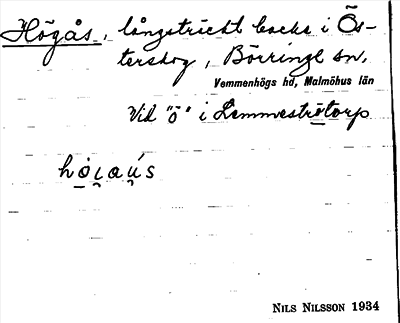 Högås, långsträckt backe i Ös-
terskog, Börringe sn,
Vemmenhögs hd, Malmöhus län
Vid "ö" i Lemmeströtorp
NILS NILSSON 1934